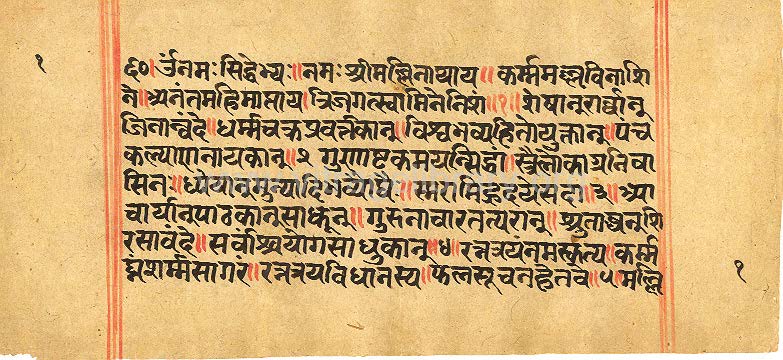 १
६०॥ ॐनमःसिद्धेभ्यः॥नमःश्रीमल्लिनाथाय॥ कर्म्ममल्लविनाशि
ने॥अनंतमहिमाप्ताय॥त्रिजगत्स्वामिनेनिशं॥१॥शेषान्
जिनान्वंदे॥धर्म्मचक्रप्रवर्त्तकान्॥विश्वभव्यहितोयुक्तान्॥पंच
कल्याणनायकान्॥२ गुणाष्टकमयन्सिद्धां॥स्त्रैलोकाग्रनिवा
सिनः॥ध्येयान्मुन्यादिभव्यौघैः॥स्मरामिहृदयेसदा॥३॥आ
चार्यानपाठकान्साधून्॥ ॥
रसावंदे॥सर्वांश्चयोगसाधुकान्॥४॥रत्नत्रयनमस्कृत्य॥कर्म्म
घ्नंशर्म्मसागरं॥रत्नत्रयविधानस्य॥फलसूचनहेतवे॥५मल्लि
१